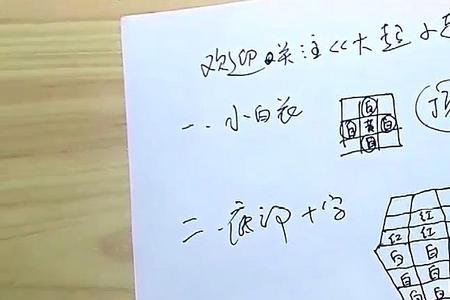 欢迎关注《大起小
一、小白花
白
白 黄 白
白
顶
二、底部十字
红
红 红
白 白
白 白
白